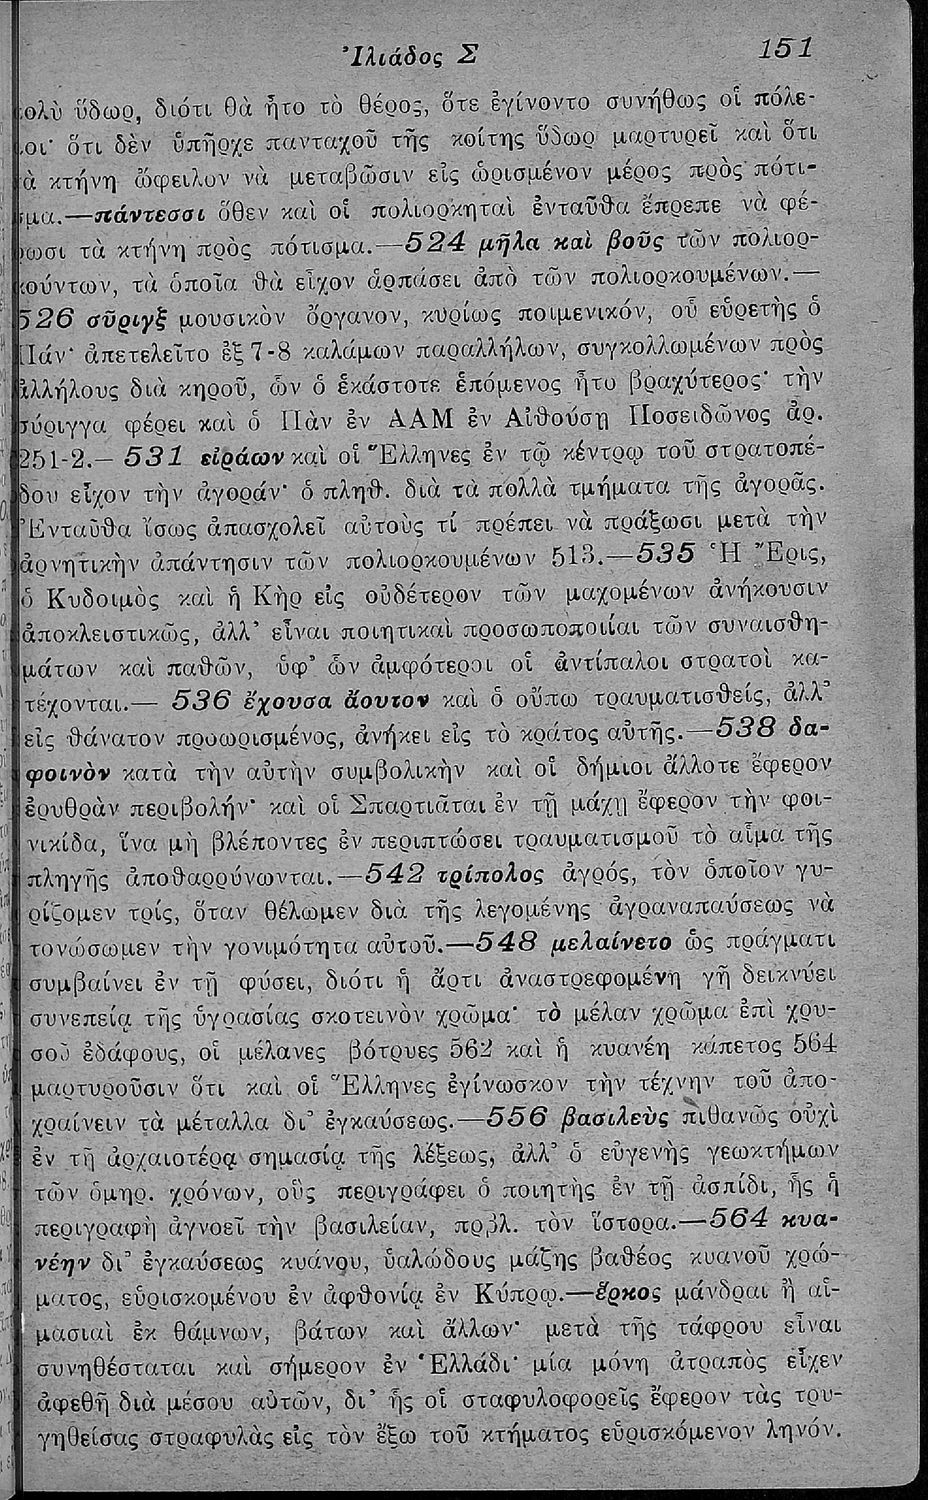 Ἰλιάδος Σ 151
ολὺ ὕδωρ, διότι θὰ ἦτο τὸ θέρος, ὅτε ἐγίνοντο συνήθως οἱ πόλε-
οι· ὅτι δὲν ὑπῆρχε πανταχοῦ τῆς κοίτης ὕδωρ μαρτυρεῖ καὶ ὅτι
ὰ κτήνη ὤφειλον νὰ μεταβῶσιν εἰς ὡρισμένον μέρος πρὸς πότι-
μα.—πάντεσσι ὅθεν καὶ οἱ πολιορκηταὶ ἐνταῦθα ἔπρεπε νὰ φέ-
ωσι τὰ κτήνη πρὸς πότισμα.—524 μῆλα καὶ βοῦς τῶν πολιορ-
ούντων, τὰ ὁποῖα θὰ εἶχον ἁρπάσει ἀπὸ τῶν πολιορκουμένων.—
526 σῦριγξ μουσικὸν ὄργανον, κυρίως ποιμενικόν, οὗ εὑρετὴς ὁ
Πάν· ἀπετελεῖτο ἐξ 7-8 καλάμων παραλλήλων, συγκολλωμένων πρὸς
ἀλλήλους διὰ κηροῦ, ὧν ὁ ἑκάστοτε ἑπόμενος ἦτο βραχύτερος· τὴν
σύριγγα φέρει καὶ ὁ Πὰν ἐν ΑΑΜ ἐν Αἰθούσῃ Ποσειδῶνος ἀρ.
251-2.—531 εἰράων καὶ οἱ Ἕλληνες ἐν τῷ κέντρῳ τοῦ στρατοπέ-
δου εἶχον τὴν ἀγοράν· ὁ πληθ. διὰ τὰ πολλὰ τμήματα τῆς ἀγορᾶς.
Ἐνταῦθα ἴσως ἀπασχολεῖ αὐτοὺς τί πρέπει νὰ πράξωσι μετὰ τὴν
ἀρνητικὴν ἀπάντησιν τῶν πολιορκουμένων 513.—535 Ἡ Ἔρις,
ὁ Κυδοιμὸς καὶ ἡ Κὴρ εἰς οὐδέτερον τῶν μαχομένων ἀνήκουσιν
ἀποκλειστικῶς, ἀλλ᾽ εἶναι ποιητικαὶ προσωποποιίαι τῶν συναισθη-
μάτων καὶ παθῶν, ὑφ᾽ ὧν ἀμφότεροι οἱ ἀντίπαλοι στρατοὶ κα-
τέχονται.— 536 ἔχουσα ἄουτον καὶ ὁ οὔπω τραυματισθείς, ἀλλ᾽
εἰς θάνατον προωρισμένος, ἀνήκει εἰς τὸ κράτος αὐτῆς.—538 δα-
φοινὸν κατὰ τὴν αὐτὴν συμβολικὴν καὶ οἱ δήμιοι ἄλλοτε ἔφερον
ἐρυθρὰν περιβολήν· καὶ οἱ Σπαρτιᾶται ἐν τῇ μάχῃ ἔφερον τὴν φοι-
νικίδα, ἵνα μὴ βλέποντες ἐν περιπτώσει τραυματισμοῦ τὸ αἷμα τῆς
πληγῆς ἀποθαρρύνωνται.—542 τρίπολος ἀγρός, τὸν ὁποῖον γυ-
ρίζομεν τρίς, ὅταν θέλωμεν διὰ τῆς λεγομένης ἀγραναπαύσεως νὰ
τονώσωμεν τὴν γονιμότητα αὐτοῦ.—548 μελαίνετο ὡς πράγματι
συμβαίνει ἐν τῇ φύσει, διότι ἡ ἄρτι ἀναστρεφομένη γῆ δεικνύει
συνεπείᾳ τῆς ὑγρασίας σκοτεινὸν χρῶμα· τὸ μέλαν χρῶμα ἐπὶ χρυ-
σοῦ ἐδάφους, οἱ μέλανες βότρυες 562 καὶ ἡ κυανέη κάπετος 564
μαρτυροῦσιν ὅτι καὶ οἱ Ἕλληνες ἐγίνωσκον τὴν τέχνην τοῦ ἀπο-
χραίνειν τὰ μέταλλα δι᾽ ἐγκαύσεως.—556 βασιλεὺς πιθανῶς οὐχὶ
ἐν τῇ ἀρχαιοτέρᾳ σημασίᾳ τῆς λέξεως, ἀλλ᾽ ὁ εὐγενὴς γεωκτήμων
τῶν ὁμηρ. χρόνων, οὓς περιγράφει ὁ ποιητὴς ἐν τῇ ἀσπίδι, ἧς ἡ
περιγραφὴ ἀγνοεῖ τὴν βασιλείαν, πρβλ. τὸν ἵστορα.—564 κυα-
νέην δι᾽ ἐγκαύσεως κυάνου, ὑαλώδους μάζης βαθέος κυανοῦ χρώ-
ματος, εὑρισκομένου ἐν ἀφθονίᾳ ἐν Κύπρῳ.—ἕρκος μάνδραι ἢ αἱ-
μασιαὶ ἐκ θάμνων, βάτων καὶ ἄλλων· μετὰ τῆς τάφρου εἶναι
συνηθέσταται καὶ σήμερον ἐν Ἑλλάδι· μία μόνη ἀτραπὸς εἶχεν
ἀφεθῆ διὰ μέσου αὐτῶν, δι᾽ ἧς οἱ σταφυλοφορεῖς ἔφερον τὰς τρυ-
γηθείσας στραφυλὰς εἰς τὸν ἔξω τοῦ κτήματος εὑρισκόμενον ληνόν.